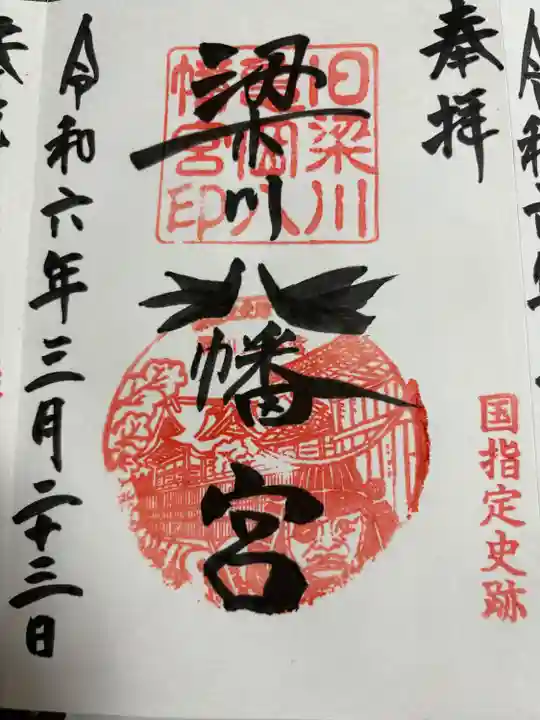 奉拝
国指定史跡
梁川八幡宮
旧梁川
亀岡八
幡宮印
令和六年三月二十三日